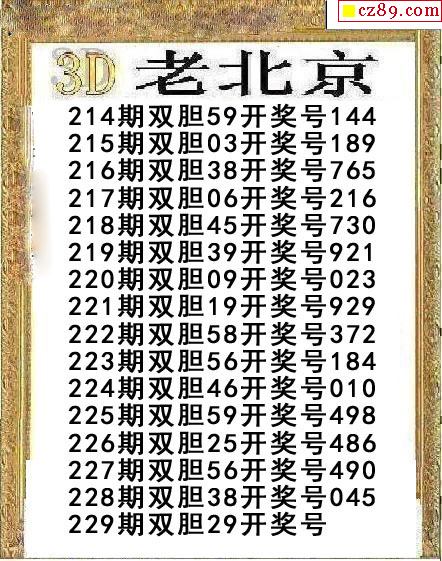 cz89.com
3D 老北京
214期双胆59开奖号144
215期双胆03开奖号189
216期双胆38开奖号765
217期双胆06开奖号216
218期双胆45开奖号730
219期双胆39开奖号921
220期双胆09开奖号023
221期双胆19开奖号929
222期双胆58开奖号372
223期双胆56开奖号184
224期双胆46开奖号010
225期双胆59开奖号498
226期双胆25开奖号486
227期双胆56开奖号490
228期双胆38开奖号045
229期双胆29开奖号